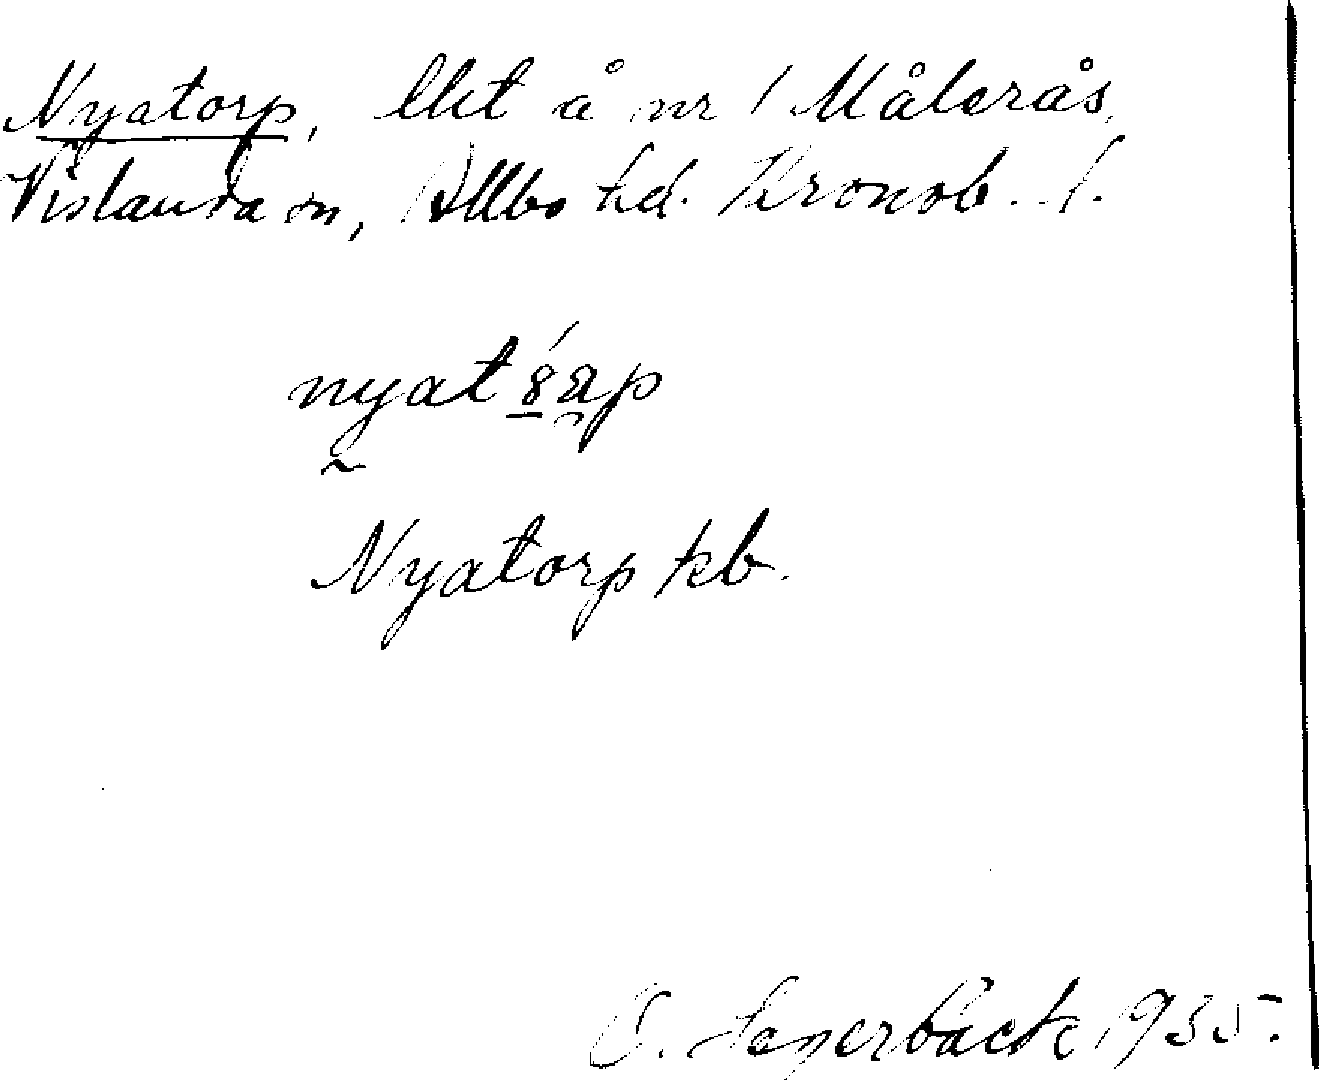 Nyatorp, lht å nr 1 Målerås,
Vislanda sn, Allbo hd. Kronob. l.
nyat
Nyatorp kb.
O. Lagerbäck 1935.